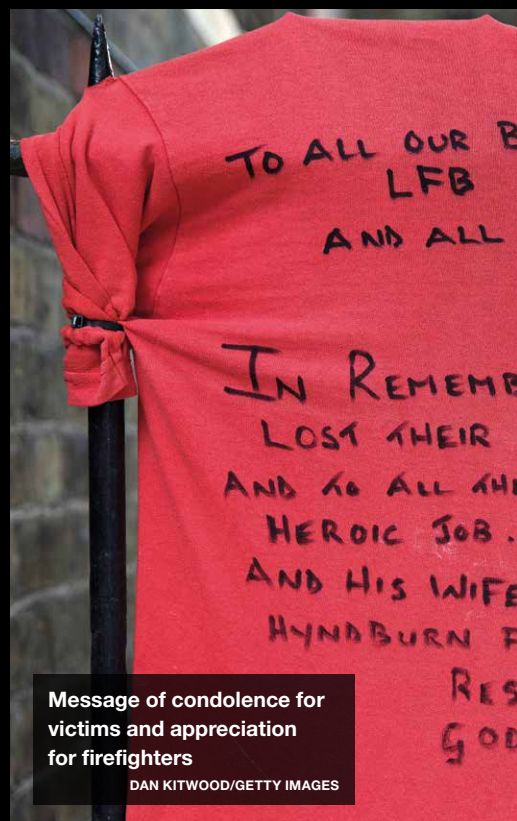 TO ALL OUR B
LFB
AND ALL
IN REMEMB
LOST THEIR
AND TO ALL THE
HEROIC JOB.
AND HIS WIFE
HYNDBURN F
RES
GOD
Message of condolence for
victims and appreciation
for firefighters
DAN KITWOOD/GETTY IMAGES